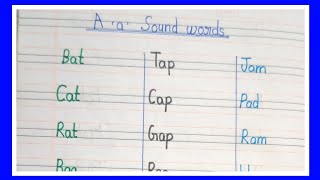 A 'a' Sound words.
Bat Tap Jam
Cat Cap Pad
Rat Gap Ram